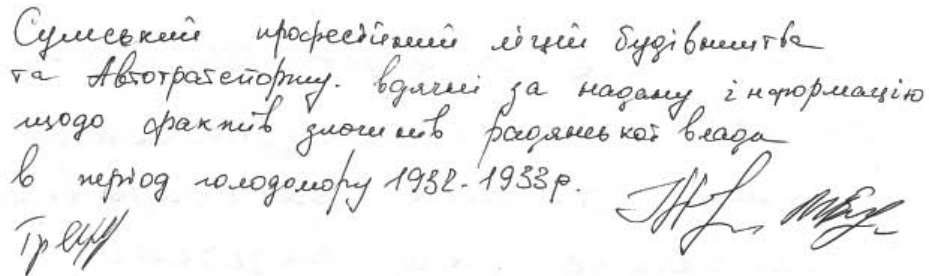 Сумський професійний ліцей будівництва
та Автотранспорту. вдячні за надану інформацію
щодо фактів злочинів радянської влади
в період голодомору 1932-1933р.